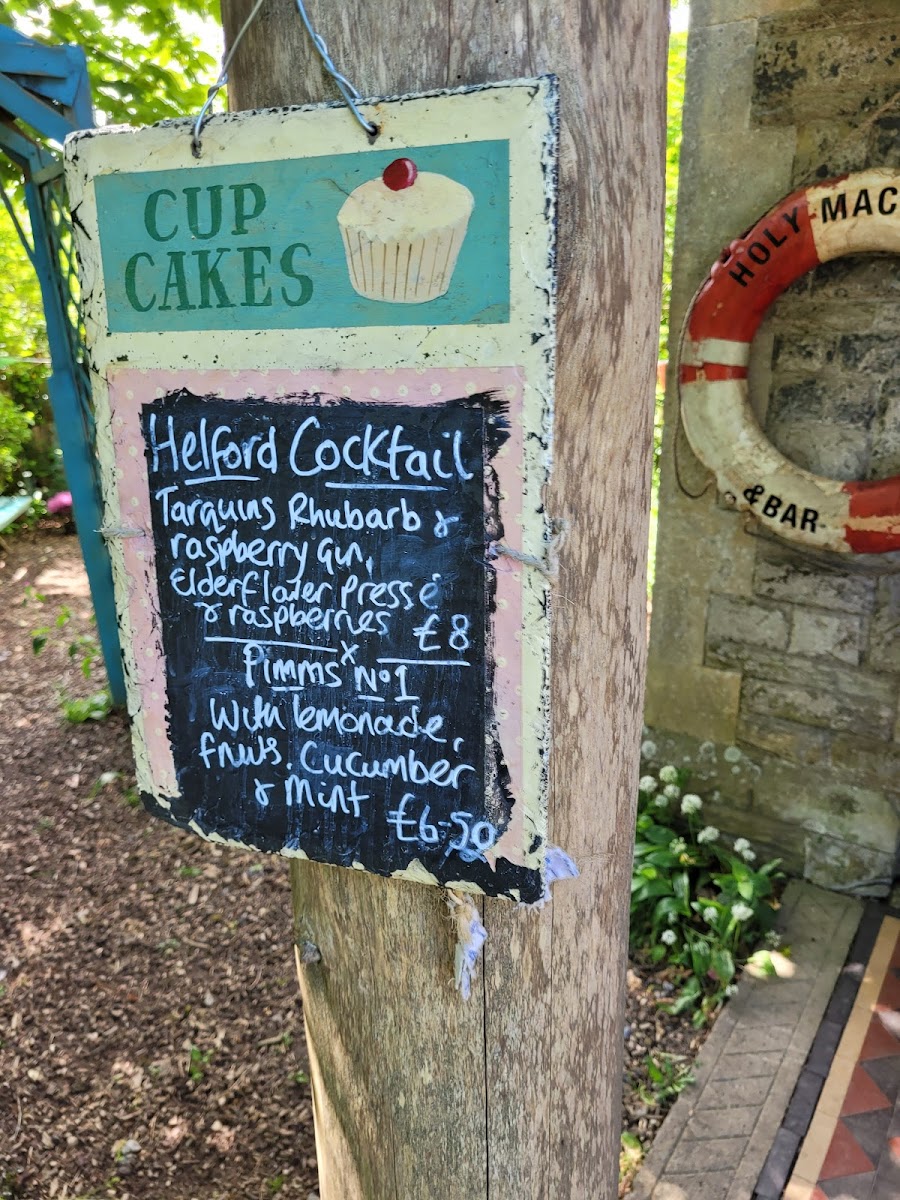 CUP
CAKES
Helford Cocktail
Tarquins Rhubarb &
raspberry Gin,
Elderflower Pressé
& raspberries £8
x
Pimms Nº1
With lemonade,
fruits, Cucumber
& Mint
£6-50
HOLY MAC
& BAR